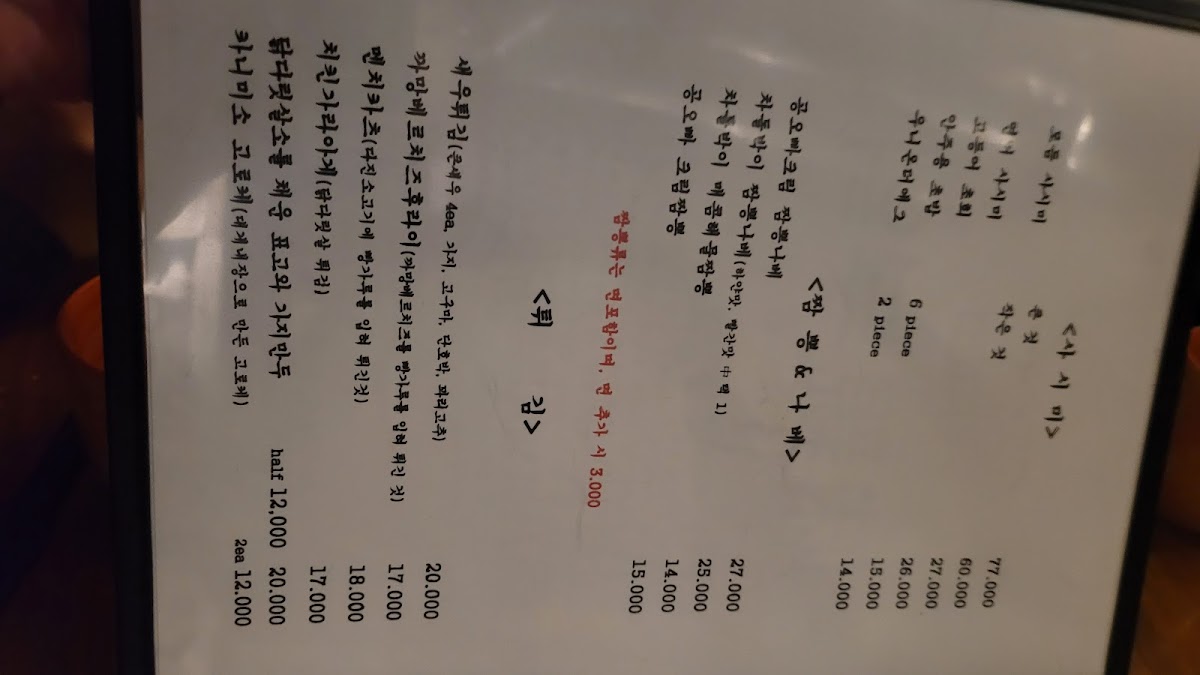 <사 시 미>
모듬 사시미 큰 것 77.000
작은 것 60.000
연어 사시미 27.000
고등어 초회 26.000
안주용 초밥 6 piece 15.000
우니온더에그 2 piece 14.000
<짬 뽕 & 나 베>
공오빠크림 짬뽕나베 27.000
차돌박이 짬뽕나베(하얀맛. 빨간맛 中 택 1) 25.000
차돌박이 매콤해물짬뽕 14.000
공오빠 크림짬뽕 15.000
짬뽕류는 면포함이며, 면 추가 시 3.000
<튀 김>
새우튀김(큰새우 4ea, 가지, 고구마, 단호박, 꽈리고추) 20.000
까망베르치즈후라이(까망베르치즈를 빵가루를 입혀 튀긴 것) 17.000
멘치카츠(다진소고기에 빵가루를 입혀 튀긴것) 18.000
치킨가라아게(닭다릿살 튀김) 17.000
닭다릿살소를 채운 표고와 가지만두 half 12,000 20.000
카니미소 고로케(대게내장으로 만든 고로케) 2ea 12.000